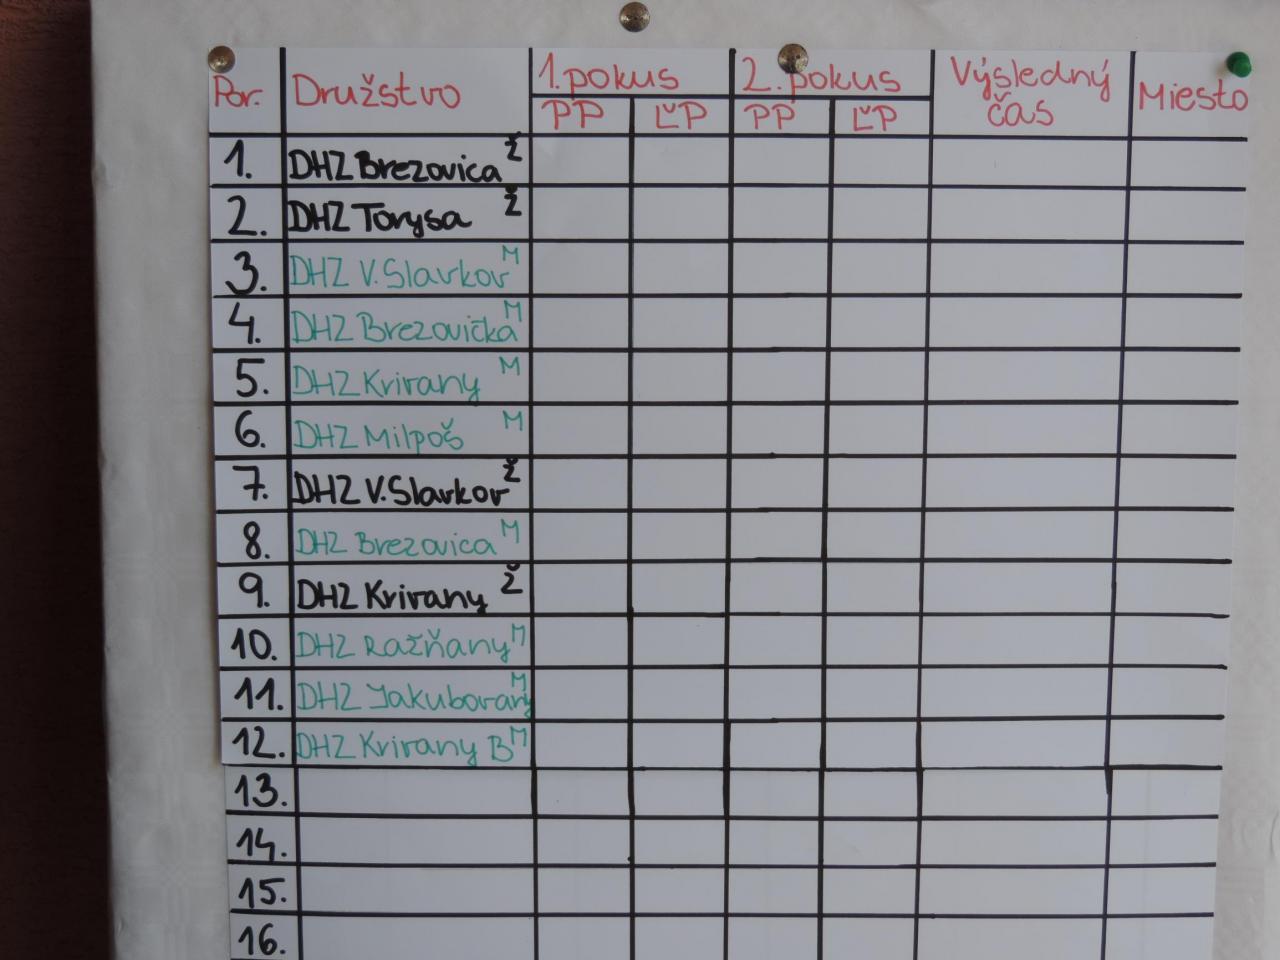 Por. Družstvo 1.pokus 2.pokus Výsledný čas Miesto
PP ĽP PP ĽP
1. DHZ Brezovica Ž
2. DHZ Torysa Ž
3. DHZ V.Slavkov M
4. DHZ Brezovička M
5. DHZ Krivany M
6. DHZ Milpoš M
7. DHZ V.Slavkov Ž
8. DHZ Brezovica M
9. DHZ Krivany Ž
10. DHZ Ražňany M
11. DHZ Jakubovany M
12. DHZ Krivany B M
13.
14.
15.
16.